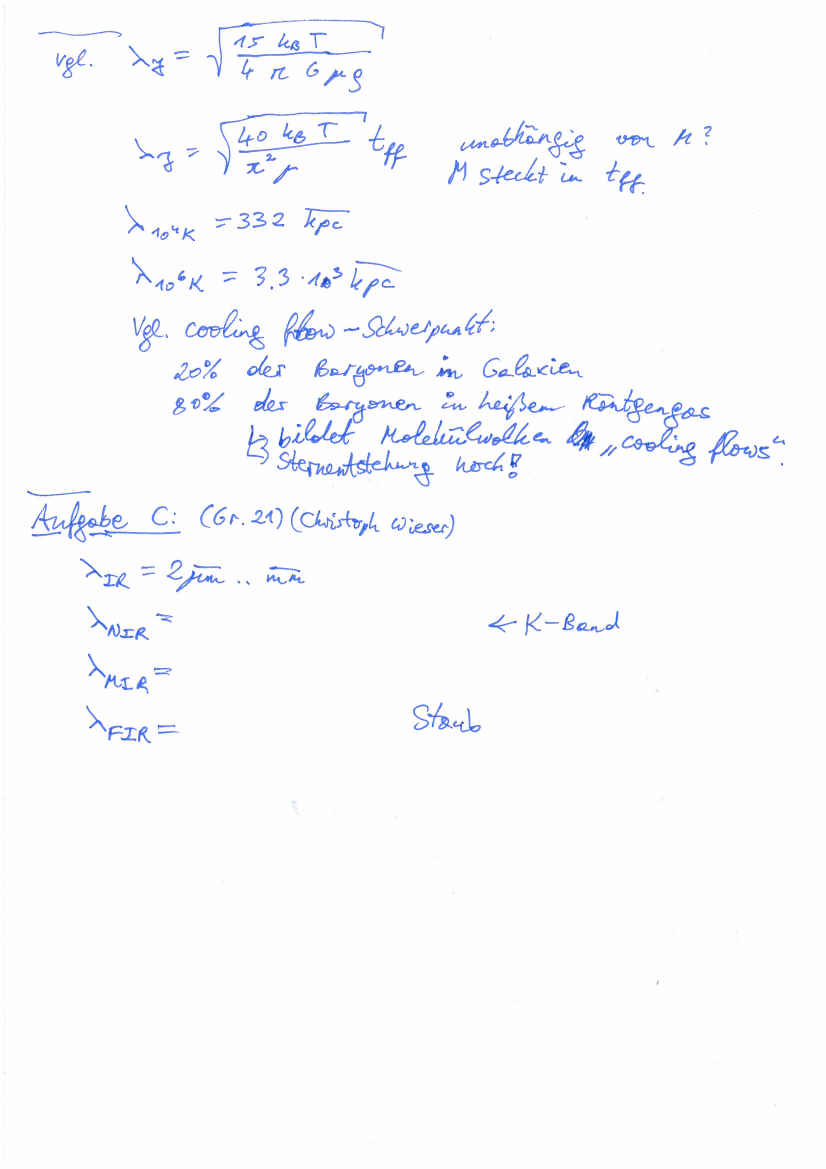 vgl. λ_J = √(15 k_B T / 4 π G μ ρ)
λ_J = √(40 k_B T / π² μ) t_ff unabhängig von M?
M steckt in t_ff.
λ_10⁴K = 332 kpc
λ_10⁶K = 3.3 · 10³ kpc
Vgl. cooling flow – Schwerpunkt:
20% der Baryonen in Galaxien
80% der Baryonen in heißem Röntgengas
↳ bildet Molekülwolken „cooling flows“.
↳ Sternentstehung hoch!
Aufgabe C: (Gr. 21) (Christoph Wieser)
λ_IR = 2 μm .. mm
λ_NIR = ← K-Band
λ_MIR =
λ_FIR = Staub